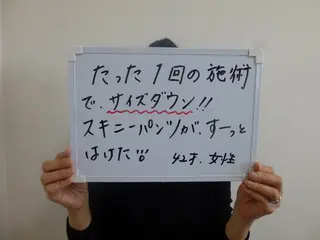 たった1回の施術
で、サイズダウン!!
スキニーパンツが、すーっと
はけた!!!
42才、女性